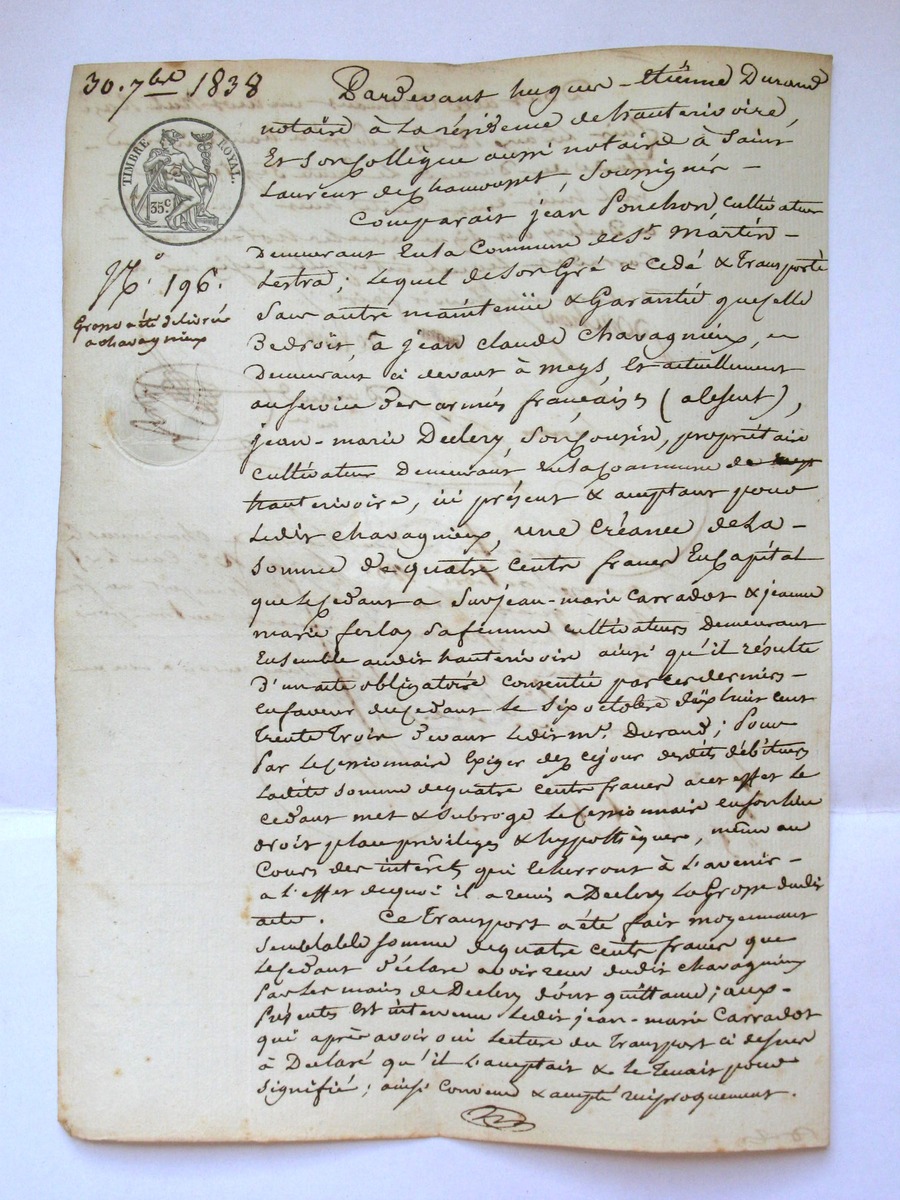 30. 7bre 1838
TIMBRE ROYAL.
35 c.
No. 196.
Grosse a été délivrée
a chavagnieux
Pardevant hugues-Etiènne Durand
notaire à La résidence de hauterivoire,
Et son Collègue aussi notaire à Saint
Laurent de Chamousset, Soussignés –
Comparait jean Ponchon Cultivateur
Demeurant En la Commune de St. Martin-
Lestra; Lequel de Son Gré a Cédé & Transporté
Sans autre maintenüe & Garantié que celle
De droit, à jean claude Chavagnieux,
Demeurant ci devant à meys, Et actuellement
au service des armées françaises (absent),
jean-marie Declery, son Cousin, propriétaire
cultivateur Demeurant En la Commune de
hauterivoire, ici présent & acceptant pour
Ledit chavagnieux, une Créance de La –
Somme de quatre cents francs En Capital
que Le Cédant a Sur jean-marie Carradot & jeanne
marie ferlay sa femme cultivateurs Demeurant
Ensemble audit hauterivoire ainsi qu'il résulte
D'un acte obligatoire consentie par ces derniers –
En faveur du Cédant Le Six octobre dix huit cent
trente trois devant Ledit me. Durand; Pour
Par Le Cessionnaire Exiger dez ce jour desdits débiteurs
Ladite somme de quatre cents francs a cet effet Le
cédant met & subroge Le Cessionnaire en son lieu
droit place privileges & hypothèques, même au
Cours des intérêts qui écherront à L'avenir –
a L'effet de quoi il a remis a Declery La Grosse dudit
acte. Ce Transport a été fait moyennant
Semblable somme de quatre cents francs que
Le Cédant déclare avoir reçu dudit chavagnieux
Par Les mains de Declery dont quittance; aux-
Présentes Est intervenu Ledit jean-marie Carradot
qui après avoir oui Lecture du Transport ci dessus
à Déclaré qu'il L'acceptait & le Tenait pour
signifié; ainsi Convenu & accepté réciproquement.